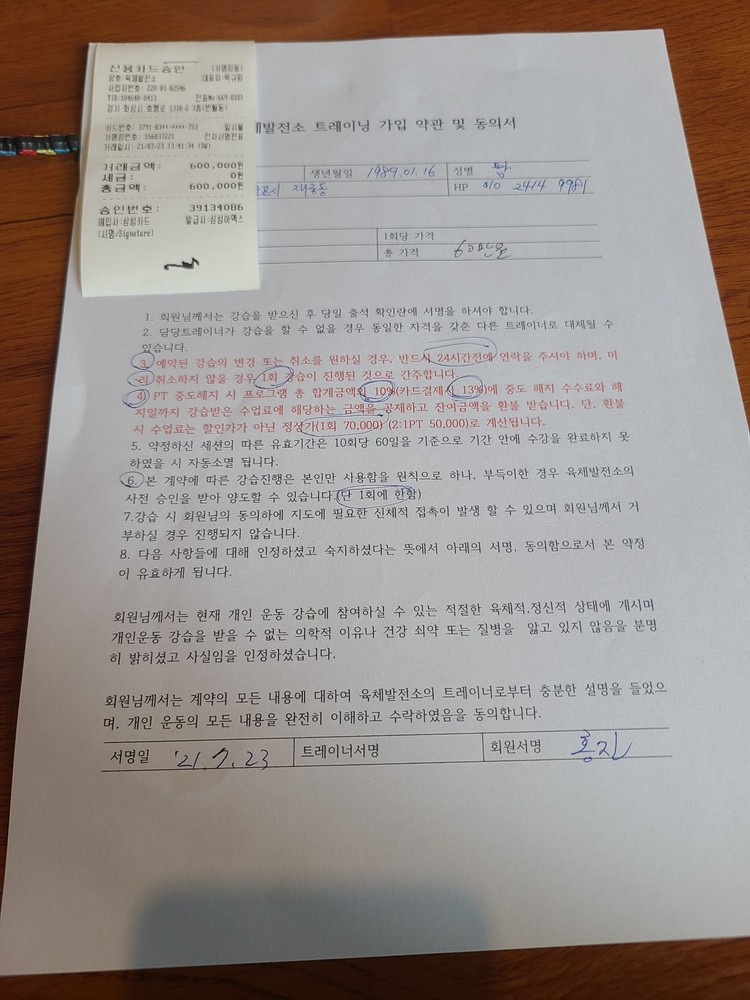 신용카드승인
(가맹점용)
상호:육체발전소
대표자:박규림
사업자번호: 220-81-82546
TID:104640-0413
전표No:669-0101
경기 화성시 효행로 1318-2 3층(반월동)
카드번호: 3791-83**-****-753
일시불
가맹점번호: 156837221
전자서명전표
거래일시: 21/07/23 13:41:34 (SW)
거래금액: 600,000원
세금: 0원
총금액: 600,000원
승인번호: 39134086
매입사:삼성카드
발급사:삼성아멕스
(서명/Signature)
체발전소 트레이닝 가입 약관 및 동의서
생년월일 1989.01.16 성별 남
HP 010 2414 9981
1회당 가격
총 가격 60만원
1. 회원님께서는 강습을 받으신 후 당일 출석 확인란에 서명을 하셔야 합니다.
2. 담당트레이너가 강습을 할 수 없을 경우 동일한 자격을 갖춘 다른 트레이너로 대체될 수
있습니다.
3. 예약된 강습의 변경 또는 취소를 원하실 경우, 반드시 24시간전에 연락을 주셔야 하며, 미
리 취소하지 않을 경우 1회 강습이 진행된 것으로 간주합니다.
4. PT 중도해지 시 프로그램 총 합계금액의 10%(카드결제시 13%)에 중도 해지 수수료와 해
지일까지 강습받은 수업료에 해당하는 금액을 공제하고 잔여금액을 환불 받습니다. 단, 환불
시 수업료는 할인가가 아닌 정상가(1회 70,000) (2:1PT 50,000)로 계산됩니다.
5. 약정하신 세션의 따른 유효기간은 10회당 60일을 기준으로 기간 안에 수강을 완료하지 못
하였을 시 자동소멸 됩니다.
6. 본 계약에 따른 강습진행은 본인만 사용함을 원칙으로 하나, 부득이한 경우 육체발전소의
사전 승인을 받아 양도할 수 있습니다.(단 1회에 한함)
7.강습 시 회원님의 동의하에 지도에 필요한 신체적 접촉이 발생 할 수 있으며 회원님께서 거
부하실 경우 진행되지 않습니다.
8. 다음 사항들에 대해 인정하셨고 숙지하셨다는 뜻에서 아래의 서명, 동의함으로서 본 약정
이 유효하게 됩니다.
회원님께서는 현재 개인 운동 강습에 참여하실 수 있는 적절한 육체적,정신적 상태에 계시며
개인운동 강습을 받을 수 없는 의학적 이유나 건강 쇠약 또는 질병을 앓고 있지 않음을 분명
히 밝히셨고 사실임을 인정하셨습니다.
회원님께서는 계약의 모든 내용에 대하여 육체발전소의 트레이너로부터 충분한 설명을 들었으
며, 개인 운동의 모든 내용을 완전히 이해하고 수락하였음을 동의합니다.
서명일 '21.7.23 트레이너서명 회원서명 홍진